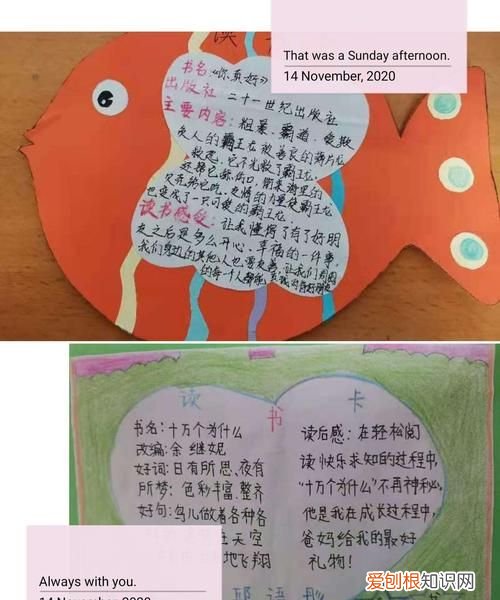 读
That was a Sunday afternoon.
14 November, 2020
书名:《你真好》
出版社:二十一世纪出版社
主要内容:粗暴、霸道、爱欺
负人的霸王龙被善良的薄片龙
救起,它不光救了霸王龙
还帮它舔伤口,
也变成了一只可爱的霸王龙。
读书感受:让我懂得了有了好朋
友之后是多么开心、幸福的一件事,
我们身边的其他人也要友善,让我们周围
的每一个人都能
读书卡
书名:十万个为什么
改编:余继妮
好词:日有所思、夜有
所梦;色彩丰富、整齐
好句:鸟儿做着各种各
天空
地飞翔
读后感:在轻松阅
读快乐求知的过程中,
“十万个为什么”不再神秘,
他是我在成长过程中,
爸妈给我的最好
礼物!
Always with you.
14 November, 2020
爱刨根知识网